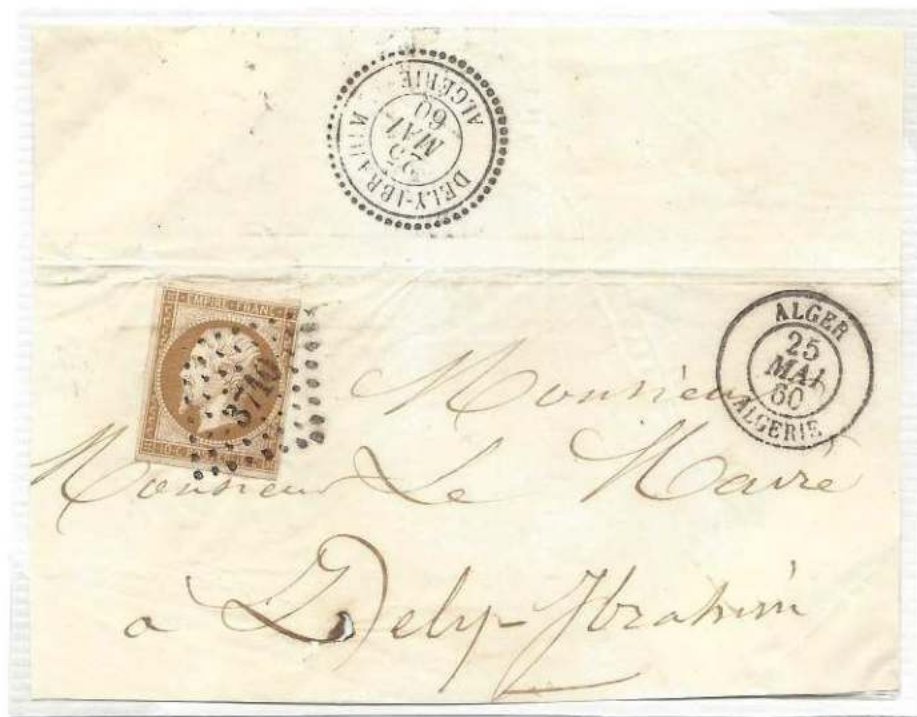 DELY-IBRAHIM
25
MAI
60
ALGÉRIE
EMPIRE · FRANC
10 · C
3710
ALGER
25
MAI
60
ALGERIE
Monsieur
Monsieur Le Maire
à Dely-Ibrahim